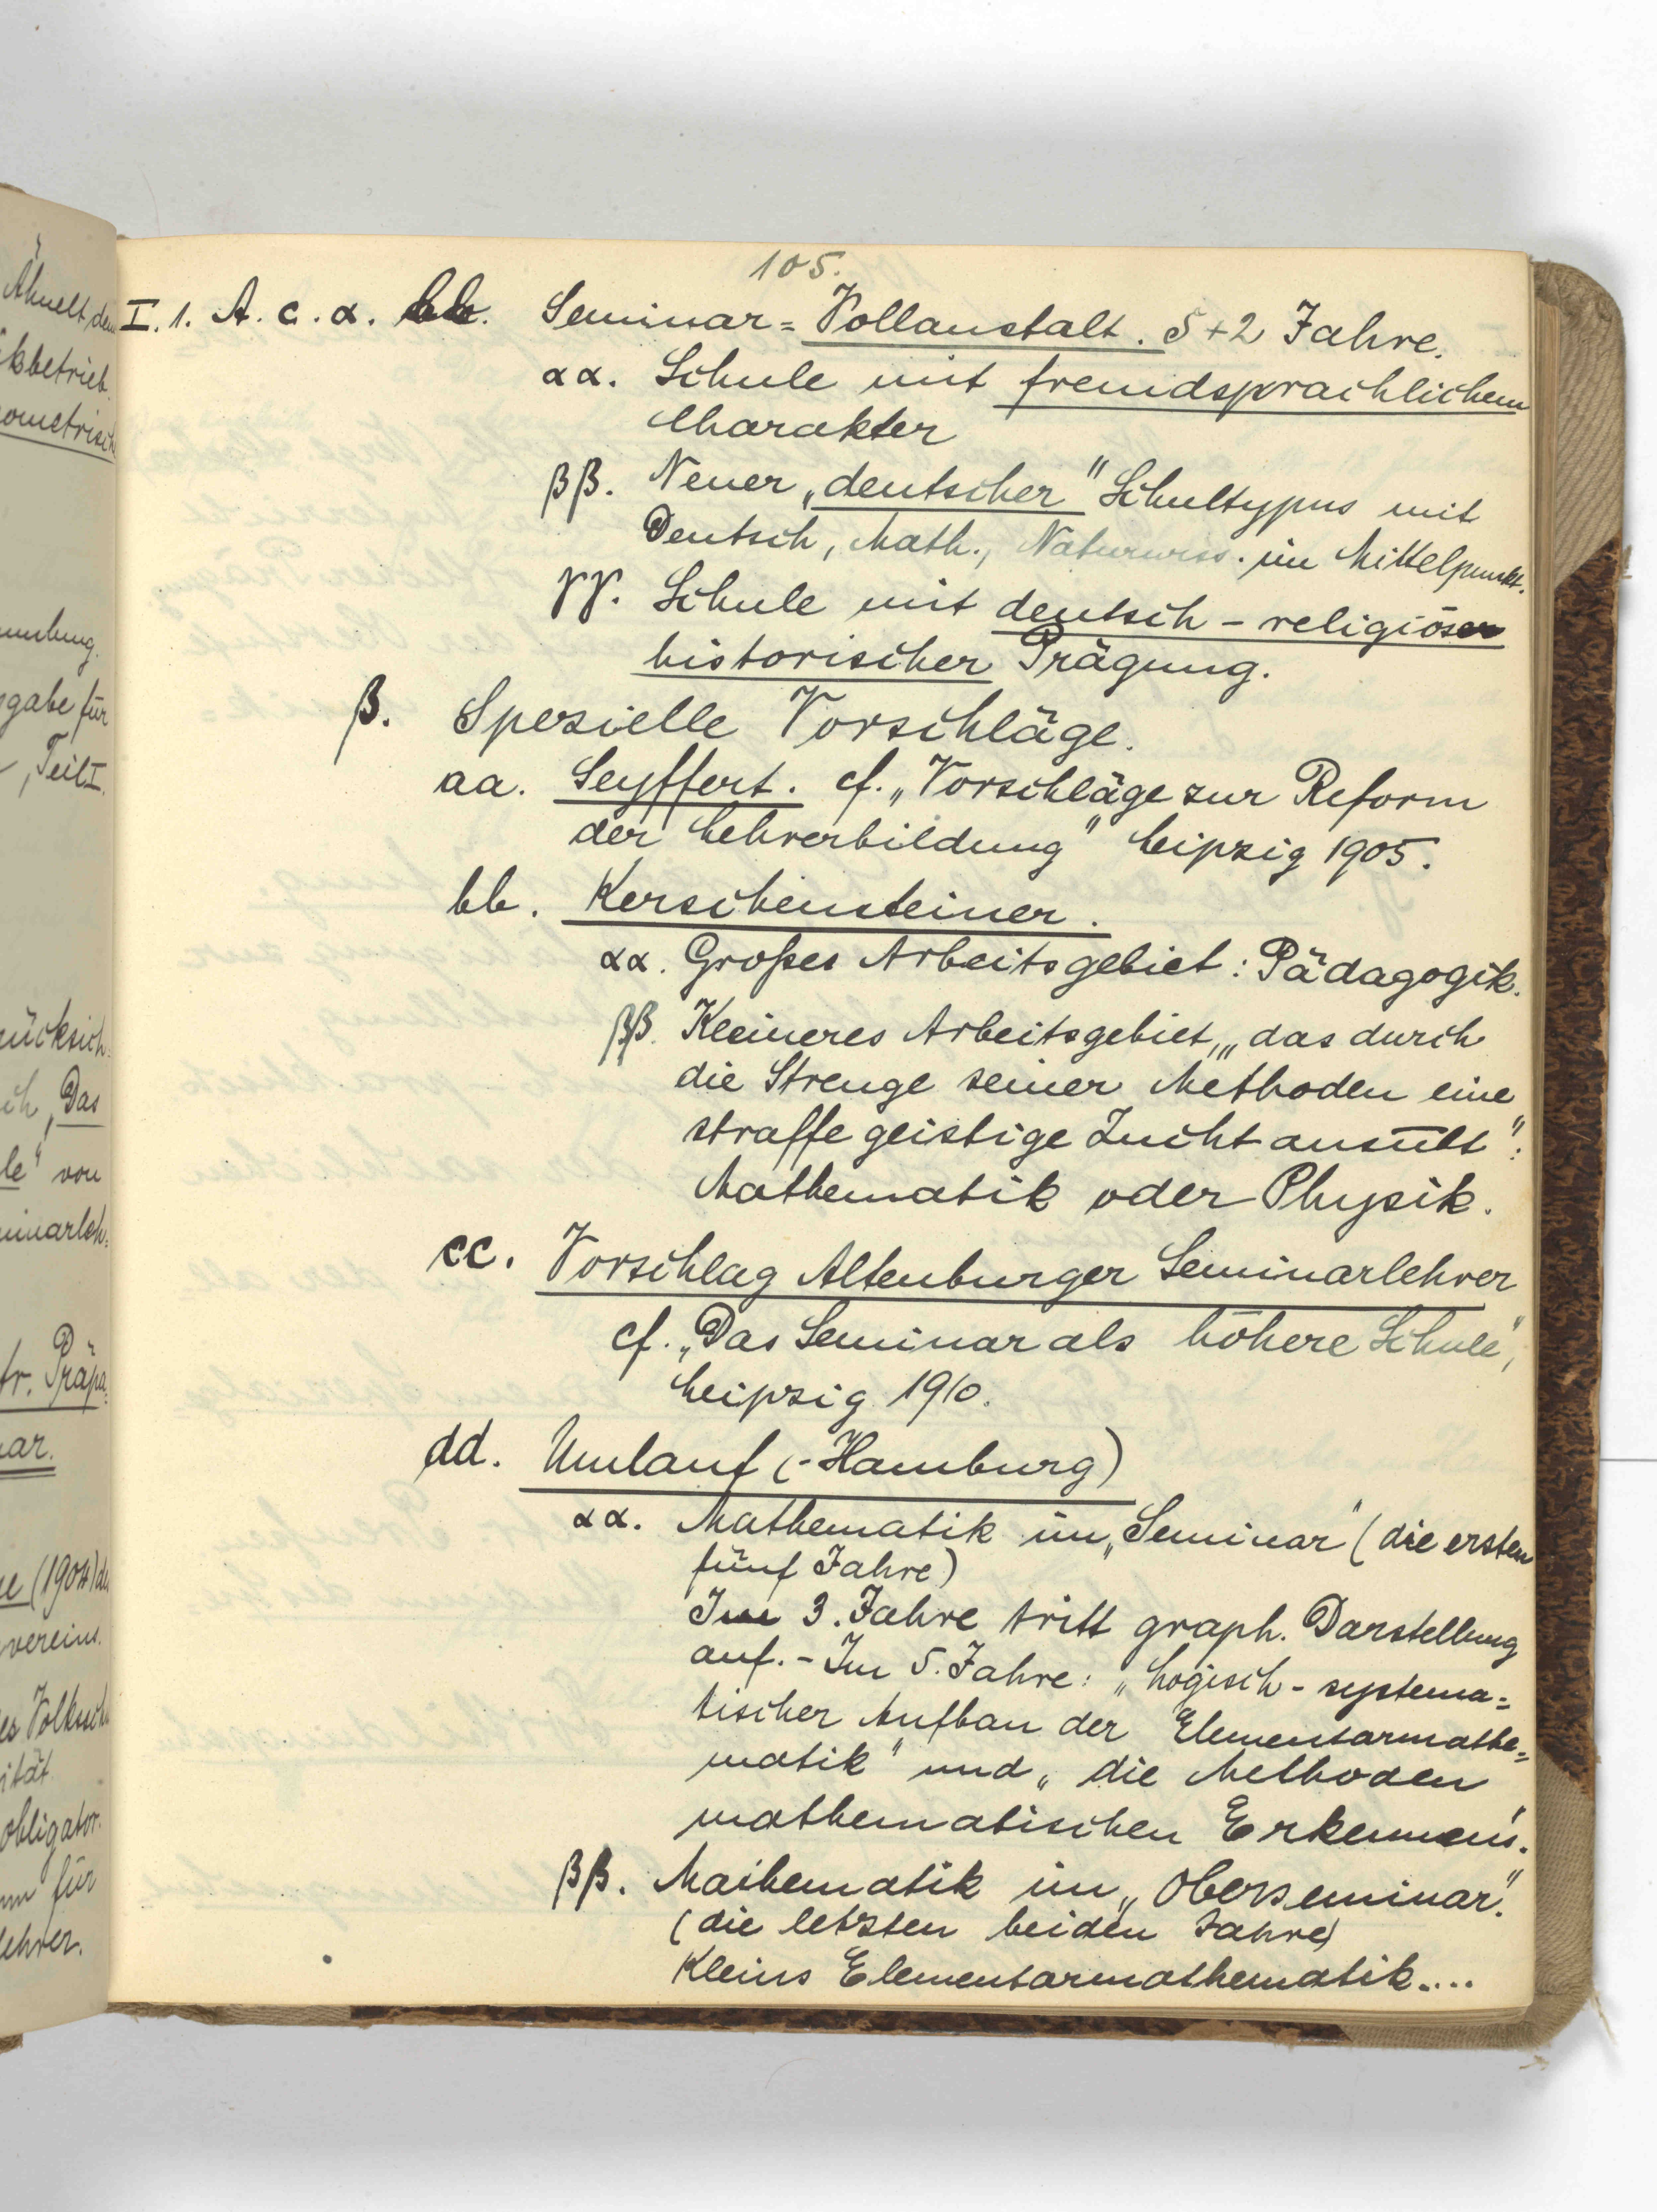 105.
I. 1. A. c. α. bb. Seminar=Vollanstalt. 5+2 Jahre.
αα. Schule mit fremdsprachlichem
Charakter
ββ. Neuer „deutscher" Schultypus mit
Deutsch, Math., Naturwiss. im Mittelpunkt.
γγ. Schule mit deutsch-religiöser
historischer Prägung.
β. Spezielle Vorschläge.
aa. Seyffert. cf. „Vorschläge zur Reform
der Lehrerbildung" Leipzig 1905.
bb. Kerschensteiner.
αα. Großes Arbeitsgebiet: Pädagogik.
ββ. Kleineres Arbeitsgebiet, „das durch
die Strenge seiner Methoden eine
straffe geistige Zucht ausübt":
Mathematik oder Physik.
cc. Vorschlag Altenburger Seminarlehrer
cf. „Das Seminar als höhere Schule",
Leipzig 1910.
dd. Umlauf (-Hamburg)
αα. Mathematik im „Seminar" (die ersten
fünf Jahre)
Im 3. Jahre tritt graph. Darstellung
auf. - Im 5. Jahre: „Logisch-systema=
tischer Aufbau der Elementarmathe=
matik" und „die Methoden
mathematischen Erkennens".
ββ. Mathematik im „Oberseminar".
(die letzten beiden Jahre)
Kleins Elementarmathematik....
Ähnelt dem
kbetrieb.
ometrisch
gabe für
, Teil I.
rücksich=
ich „Das
le" von
minarleh=
fr. Präpa=
nar.
ne (1904) des
vereins.
es Volksch
ität
obligator.
für
lehrer.